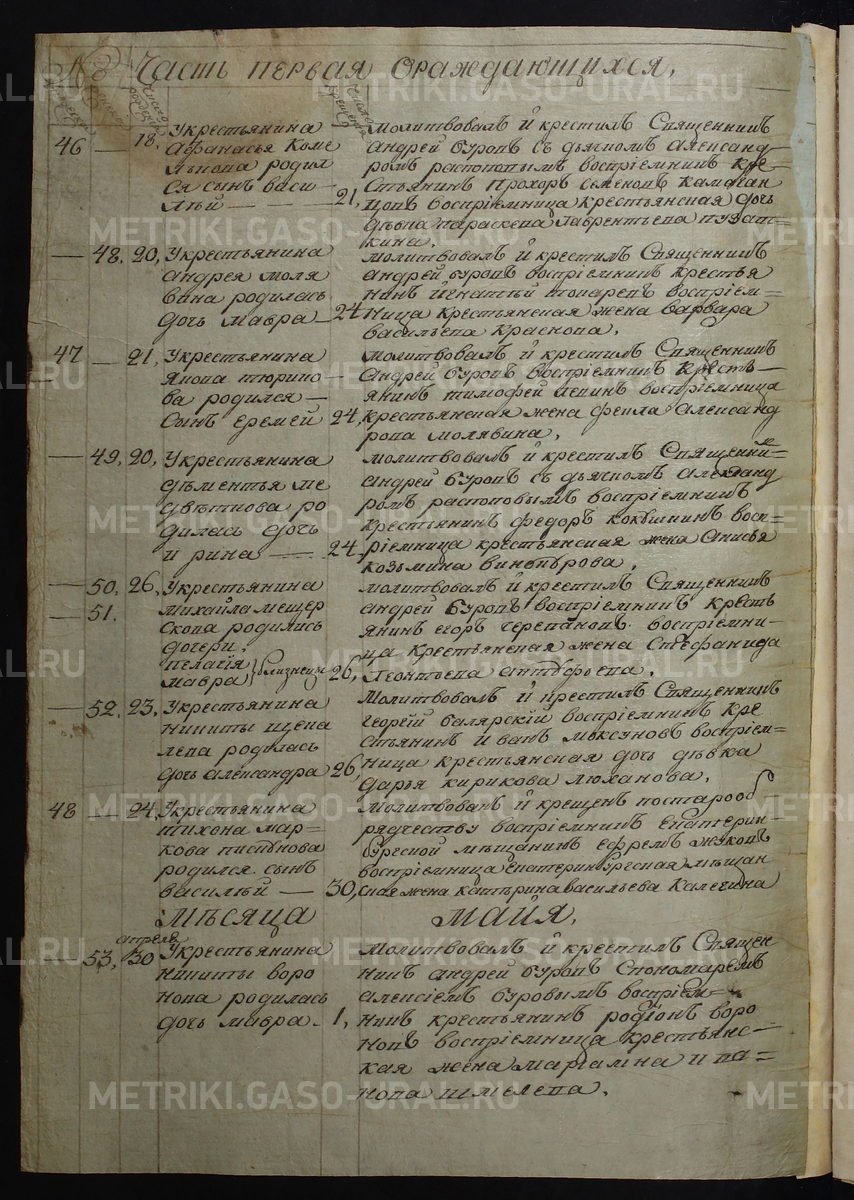 Часть первая ораждающихся,
46 — 18, Укрестьянина
Афанасья Коме
лькова родил
ся сынъ васи
лѣй — 21,
молитвовалъ и крестилъ Священникъ
андрей буровъ съ дьячкомъ александ
ромъ распоповымъ воспріемникъ кре
стьянинъ прохоръ семеновъ
воспріемница крестьянская дочь
дѣвка параскева лаврентьева пузат
кина.
— 48. 20, Укрестьянина
андрея моля
вина родилась
дочь мавра — 24
молитвовалъ и крестилъ Священникъ
андрей буровъ воспріемникъ крестья
нинъ игнатѣй токаревъ воспріем=
ница крестьянская жена варвара
васильева краснова.
47 — 21, Укрестьянина
якова тюрико
ва родился —
сынъ еремей 24,
молитвовалъ и крестилъ Священникъ
андрей буровъ воспріемникъ кресть—
янинъ тимофей воспріемница
крестьянская жена фекла александ
рова молявина.
— 49, 20, Укрестьянина
дѣментья ме
двѣткова ро
дилась дочь
ирина — 24,
молитвовалъ и крестилъ Священни=
андрей буровъ съ дьячкомъ александ
ромъ распоповымъ воспріемникъ
крестьянинъ федоръ кокшинъ восп=
ріемница крестьянская жена анисья
козьмина винокурова.
— 50, 26, Укрестьянина
— 51. михайла мещер
скова родились
дочери,
пелагія
мавра } близнецы 26,
молитвовалъ и крестилъ Священникъ
андрей буровъ воспріемникъ кресть
янинъ егоръ черепановъ воспріемни=
ца крестьянская жена Стефанида
леонтьева
— 52. 23, Укрестьянина
никиты щепа
лева родилась
дочь александра 26,
молитвовалъ и крестилъ Священникъ
георгій балярскій воспріемникъ кре
стьянинъ иванъ моксуновъ воспріем=
ница крестьянская дочь дѣвка
дарья кирикова люханова.
48 — 24, Укрестьянина
тихона мар=
кова
родился сынъ
василѣй — 30,
молитвованъ и крещенъ постарооб
рядчеству воспріемникъ Екатерин=
бурской мѣщанинъ ефремъ жуковъ
воспріемница Екатеринбурская мѣщан
ская жена катѣрина васильева калегина
Мѣсяца майя,
апреля
53, 30 Укрестьянина
никиты воро
нова родилась
дочь мавра. 1,
молитвовалъ и крестилъ Священ
никъ андрей буровъ Спономаремъ
алексіемъ буровымъ воспріем=
никъ крестьянинъ родіонъ воро
новъ воспріемница крестьянс—
кая жена маріамна ива=
нова шмелева.
METRIKI.GASO-URAL.RU